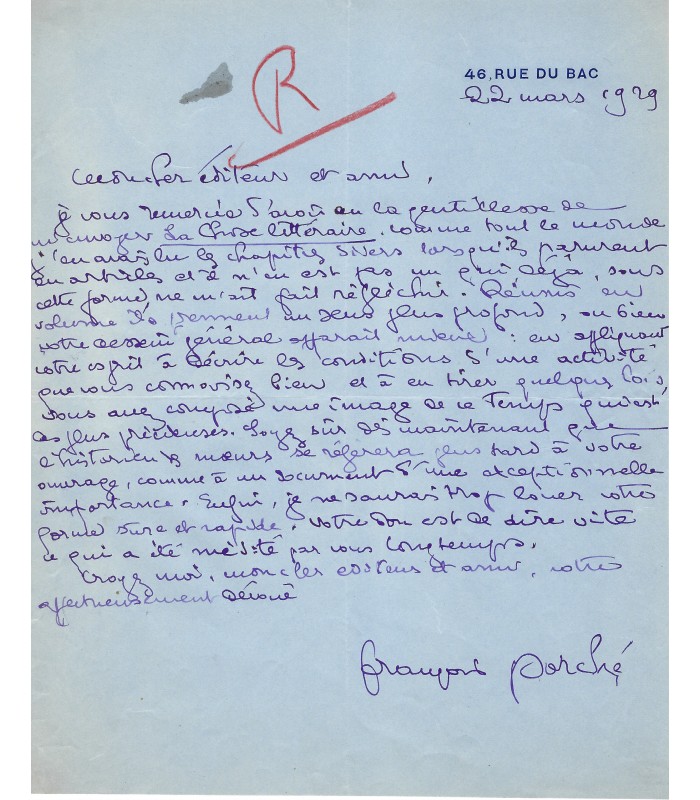 R
46, RUE DU BAC
22 mars 1929
Mon cher éditeur et ami,
je vous remercie d'avoir eu la gentillesse de
m'envoyer La Chose littéraire. Comme tout le monde
j'en avais lu les chapitres divers lorsqu'ils parurent
en articles et il n'en est pas un qui déjà, sous
cette forme, ne m'ait fait réfléchir. Réunis en
volume ils prennent un sens plus profond, ou bien
votre dessein général apparaît mieux : en appliquant
votre esprit à décrire les conditions d'une activité
que vous connaissez bien et à en tirer quelques lois,
vous avez composé une image de ce Temps qui est
des plus précieuses. Soyez sûr dès maintenant que
l'historien des mœurs se référera plus tard à votre
ouvrage, comme à un document d'une exceptionnelle
importance. Enfin, je ne saurais trop louer votre
forme sure et rapide. Votre don est de dire vite
ce qui a été médité par vous longtemps.
Croyez moi, mon cher éditeur et ami, votre
affectueusement dévoué
François Porché